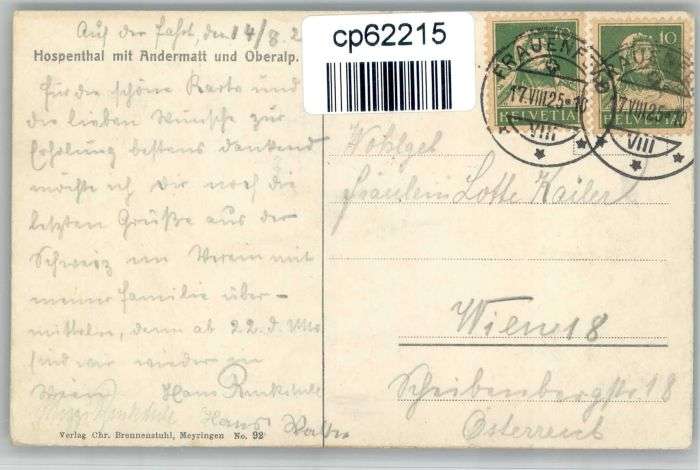 Auf der Fahrt, den 14/8.2
Hospenthal mit Andermatt und Oberalp.
Für die schöne Karte und
die lieben Wünsche zur
Erholung bestens dankend
möchte ich Dir noch die
letzten Grüße aus der
Schweiz im Verein mit
meiner Familie über-
mitteln, denn ab 22. d. Mts
sind wir wieder in
Wien Hans
Hans Walter
Verlag Chr. Brennenstuhl, Meyringen No. 92
cp62215
FRAUENFELD
17.VIII.25
VIII
10
HELVETIA
FRAUENFELD
17.VIII.25-10
VIII
10
HELVETIA
Wohlgeb
Fräulein Lotte Kailer
Wien 18
Scheibenbergstr 18
Österreich